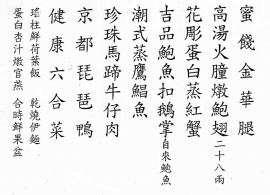 蜜餞金華腿
高湯火朣燉鮑翅二十八兩
花彫蛋白蒸紅蟹
吉品鮑魚扣鵝掌自來鮑魚
潮式蒸鷹鯧魚
珍珠馬蹄牛仔肉
京都琵琶鴨
健康六合菜
瑤柱鮮荷葉飯　乾燒伊麵
蛋白杏汁燉官燕　合時鮮果盆